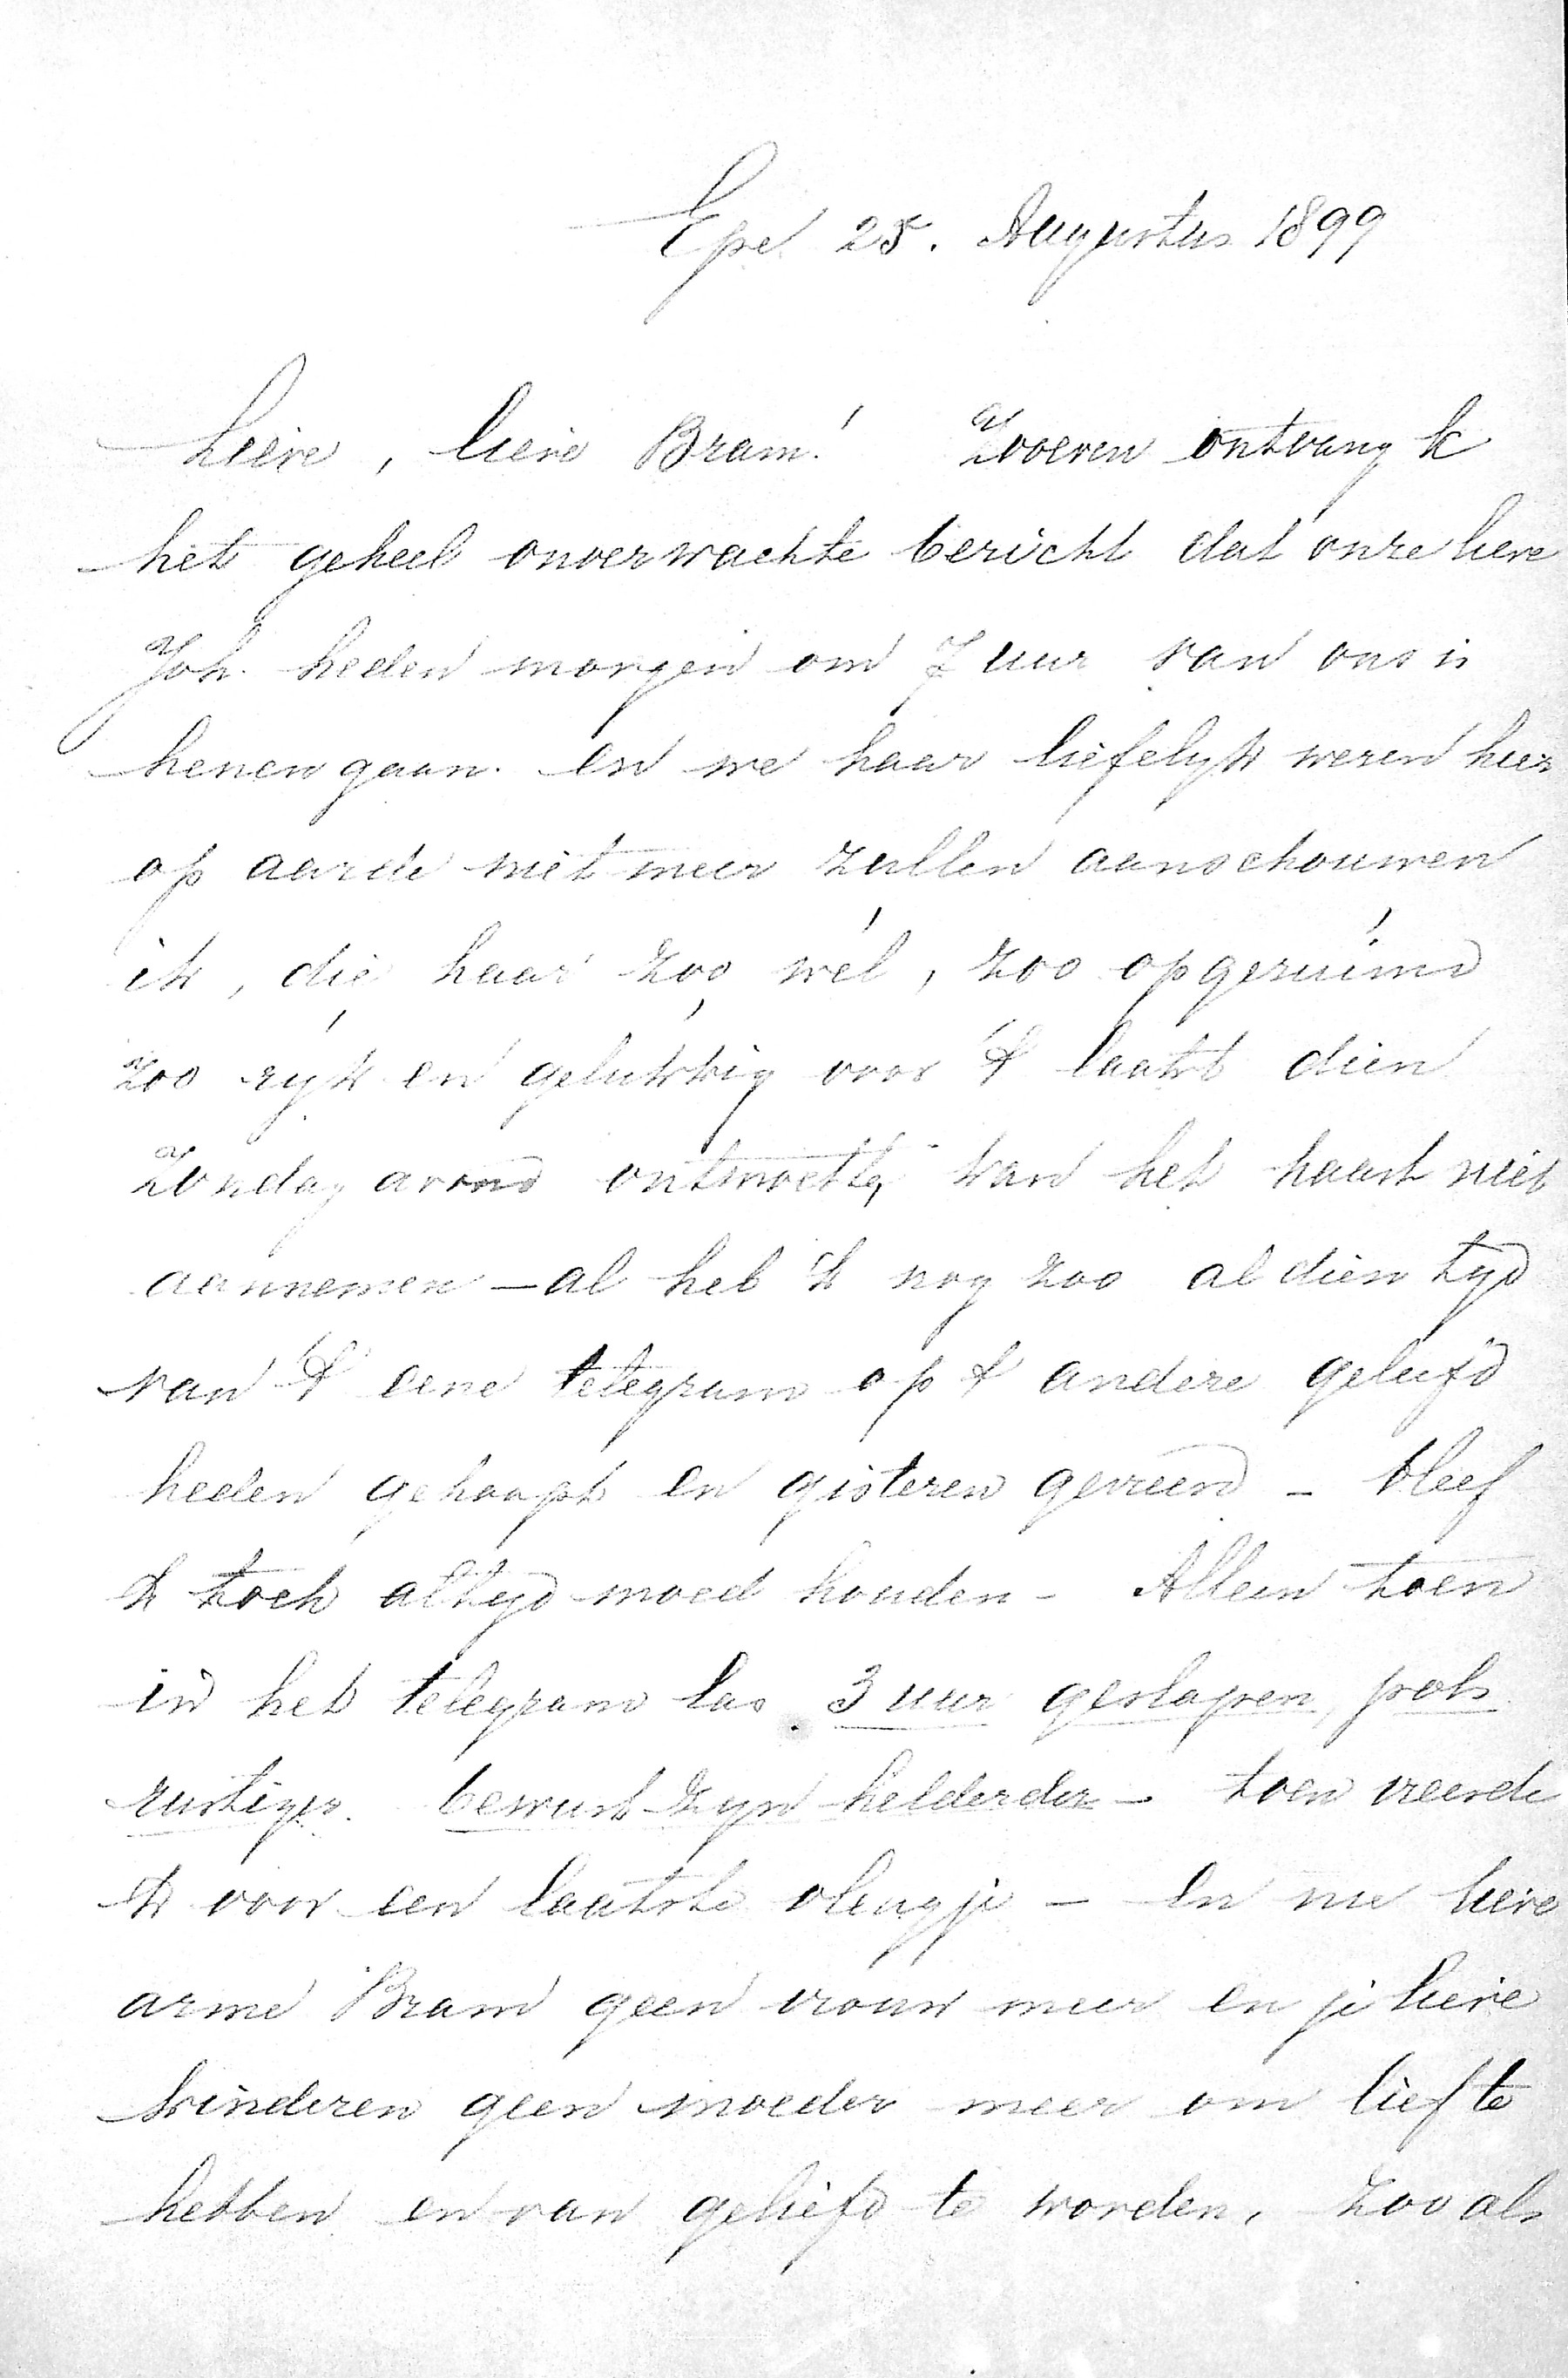 Epe 25. Augustus 1899
Lieve, lieve Bram! Zooeven ontvang k
het geheel onverwachte bericht dat onze lieve
Joh. heden morgen om 7 uur van ons is
henengaan. en we haar liefelyk wezen hier
op aarde niet meer zullen aanschouwen
ik, die haar zoo wél, zoo opgeruimd
zoo ryk en gelukkig voor 't laatst dien
Zondag avond ontmoette, kan het haast niet
aannemen — al heb 'k nog zoo al dien tyd
van 't eene telegram op 't andere geleefd
heden gehoopt en gisteren gevreesd — bleef
'k toch altyd moed houden — Alleen toen
in het telegram las 3 uur geslapen, pols
rustiger. bewust zyn helderder — toen vreesde
'k voor een laatste vleugje — En nu lieve
arme Bram geen vrouw meer en je lieve
kinderen geen moeder meer om lief te
hebben en van geliefd te worden, zooals